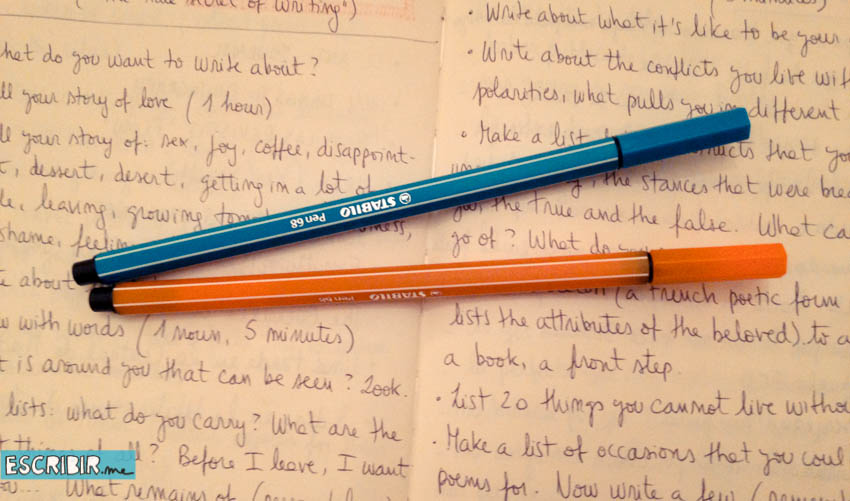 secret of writing")
hat do you want to write about?
ll your story of love (1 hour)
ll your story of: sex, joy, coffee, disappoint-
t, dessert, desert, getting in a lot of
le, leaving, growing
shame,
about
w with words (1 noun, 5 minutes)
t is around you that can be seen? Look.
lists: what do you carry? What are the
? Before I leave, I want
What remains of
• Write about what it's like to be your
• Write about the conflicts you live wit
polarities, what pulls you in different
• Make a list that yo
, the stances that were
the true and the false. What ca
go of? What do
(a french poetic form
lists the attributes of the beloved) to a
a book, a front step.
• List 20 things you cannot live witho
• Make a list of occasions that you coul
poems for. Now write a few
STABILO Pen 68
STABILO Pen 68
ESCRIBIR.me